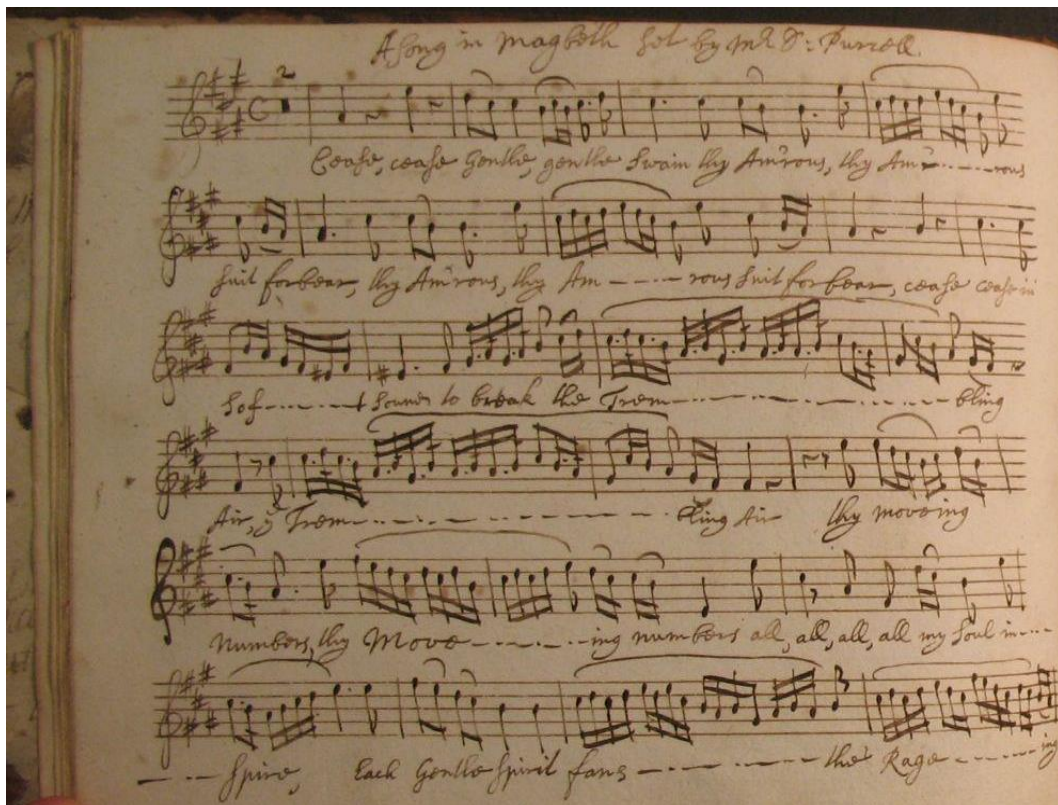 A Song in Magbeth Set by Mr D: Purcell.
2
Cease, cease Gentle, gentle Swain thy Am'rous, thy Am'- - - - rous
suit forbear, thy Am'rous, thy Am - - - - rous suit forbear, cease cease in
Sof - - - - - t sounds to break the Trem - - - - - - - - - - - bling
Air, ye Trem - - - - - - - - - - - - bling Air thy moveing
Numbers, thy Move - - - - - - ing numbers all, all, all, all my Soul in - - -
- - - - spire, Each Gentle spirit fans - - - - - - - the Rage - - - - ing